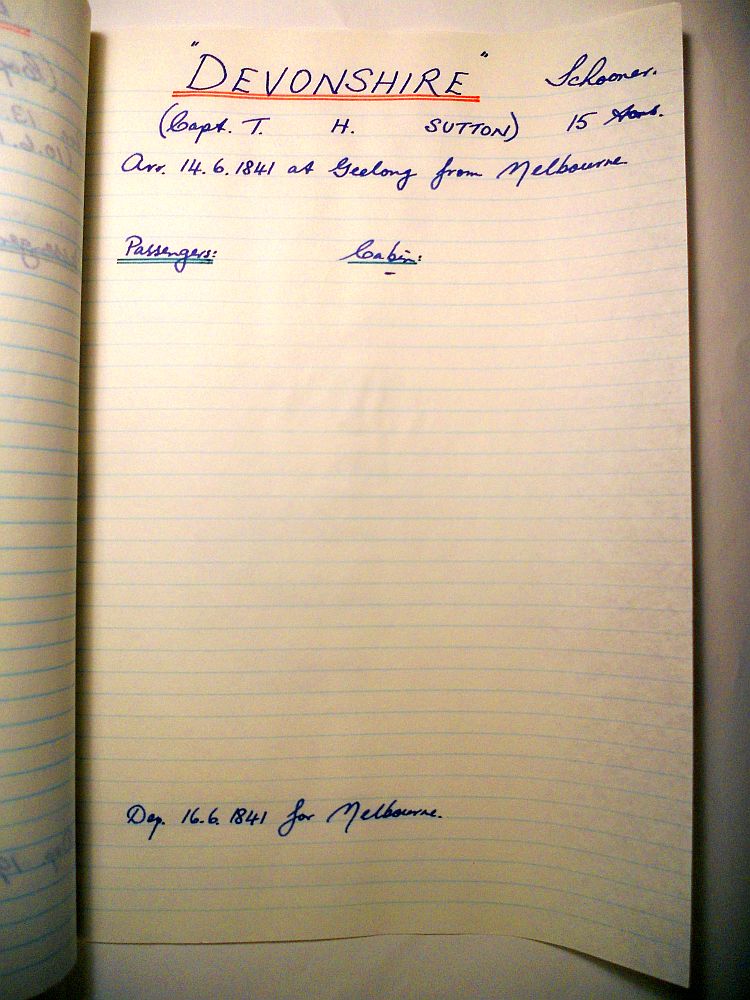 "DEVONSHIRE" Schooner.
(Capt. T. H. SUTTON) 15 tons.
Arr. 14.6.1841 at Geelong from Melbourne
Passengers: Cabin:
-
Dep. 16.6.1841 for Melbourne.